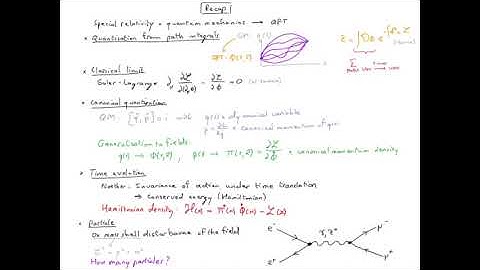 Recap
Special relativity + quantum mechanics → QFT
* Quantisation from path integrals
QM: q(t)
QFT: Φ(t,x)
Z = ∫DΦ e
* Classical limit
Euler-Lagrange ∂L/∂Φ = 0
* Canonical quantisation
QM: [q, p] = i q(t) = dynamical variable
p = ∂L/∂q̇ = canonical momentum of q(t)
Generalisation to fields:
q(t) → Φ(t,x) , p(t) → π(t,x) = ∂L/∂Φ̇ = canonical momentum density
* Time evolution
Noether: Invariance of action under time translation
→ conserved energy (Hamiltonian)
Hamiltonian density: H(x) = π(x) Φ̇(x) - L(x)
* Particle
On mass shell disturbance of the field
E² = p² + m²
How many particles?
e⁻
e⁺
γ, Z°
μ⁻
μ⁺